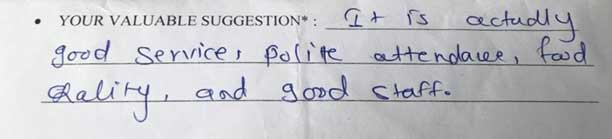 • YOUR VALUABLE SUGGESTION* : It is actually
good service, polite attendance, food
Quality, and good staff.